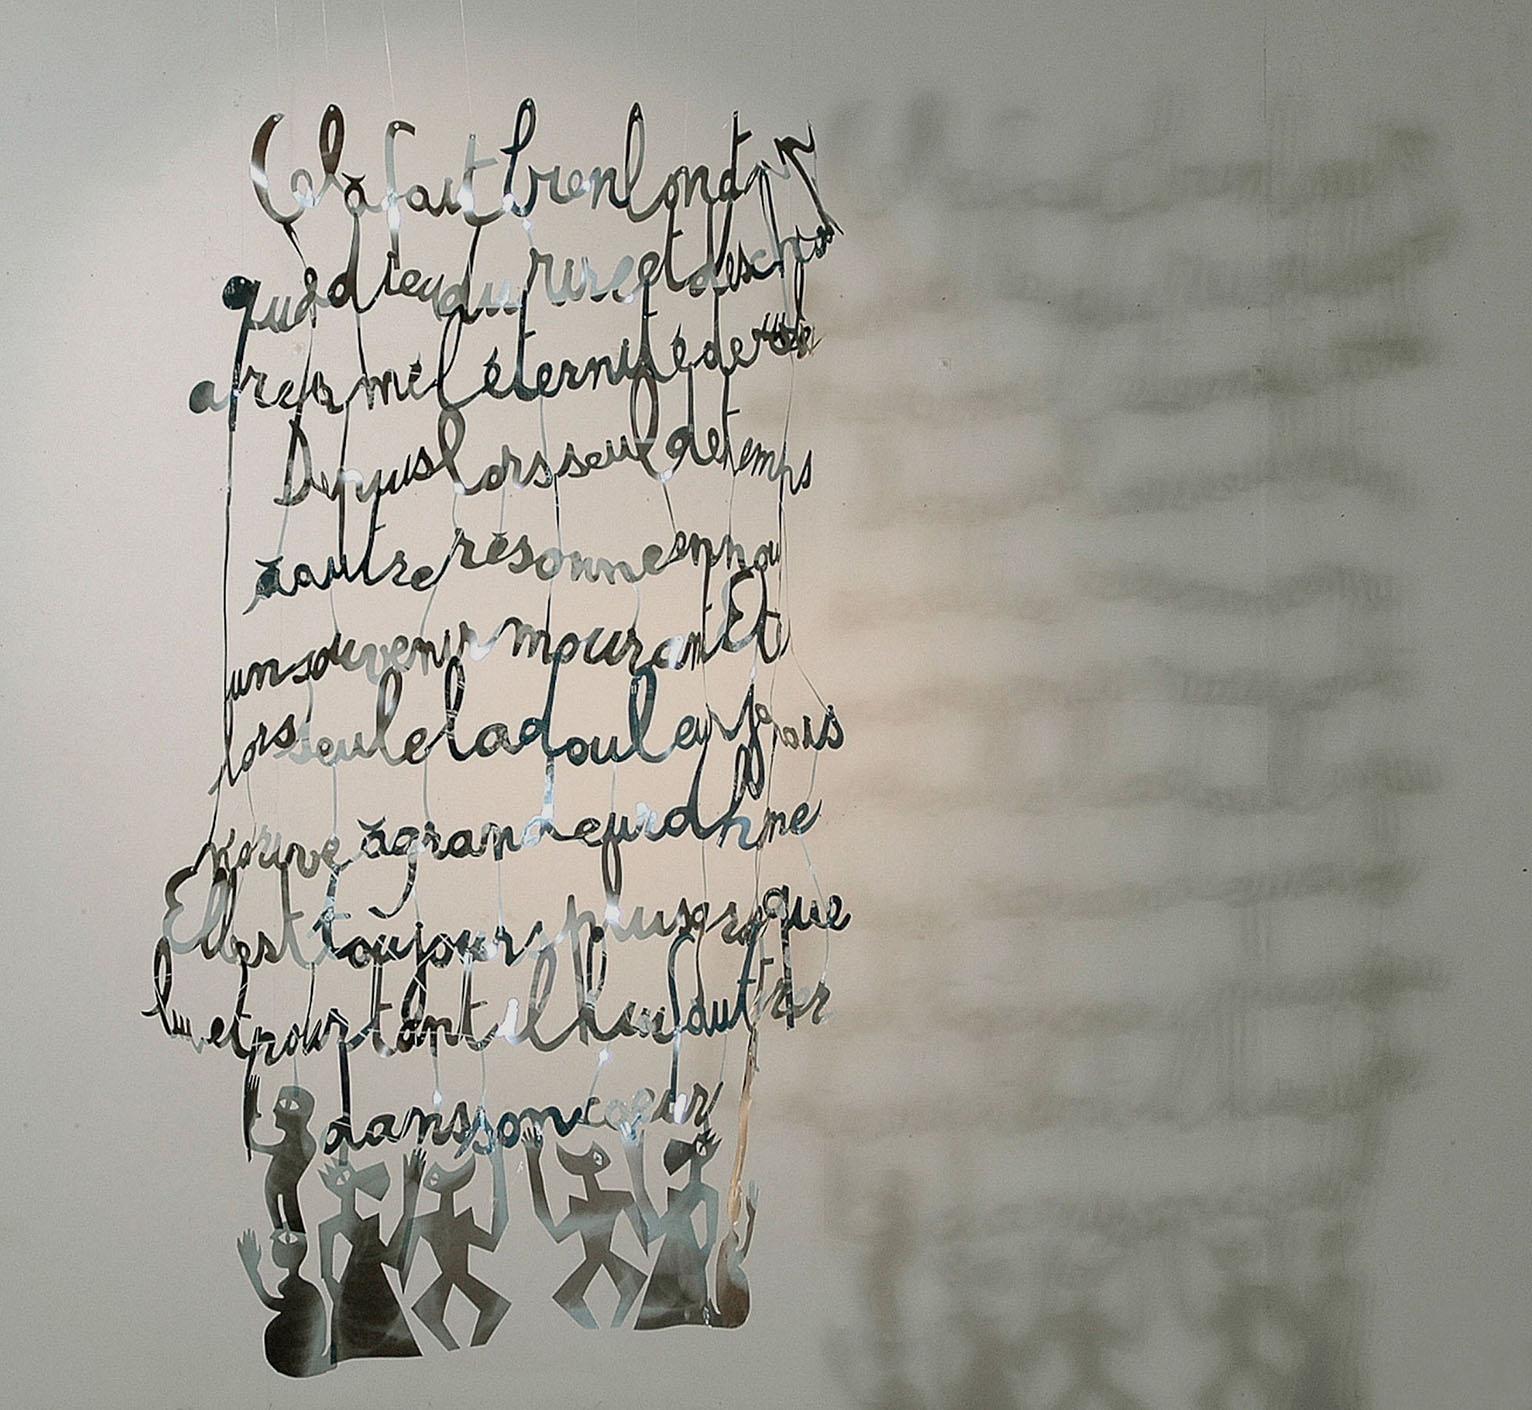 Cela fait bien longt
que dieu du rire et des
a créa mé l éternité de
Depuis lors seul de temps
à autre résonne en nou
un souvenir mourant Et
lors seule la douleur
à grandeur d h me
Elle est toujours plus que
lui et pourtant il lui faut
dans son coeur